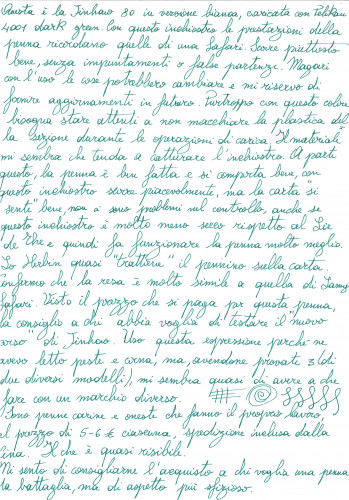 Questa è la Jinhao 80 in versione bianca, caricata con Pelikan
4001 dark green. Con questo inchiostro le prestazioni della
penna ricordano quelle di una Safari. Scorre piuttosto
bene, senza impuntamenti o false partenze. Magari
con l'uso le cose potrebbero cambiare e mi riservo di
fornire aggiornamenti in futuro. Purtroppo con questo colore
bisogna stare attenti a non macchiare la plastica del
la sezione durante le operazioni di carica. Il materiale
mi sembra che tenda a catturare l'inchiostro. A parte
questo, la penna è ben fatta e si comporta bene, con
questo inchiostro scorre piacevolmente, ma la carta si
"sente" bene, non ci sono problemi nel controllo, anche se
questo inchiostro è molto meno secco rispetto al Lie
de Thé e quindi fa funzionare la penna molto meglio.
Lo Herbin quasi "trattiene" il pennino sulla carta.
Confermo che la resa è molto simile a quella di Lamy
Safari. Visto il prezzo che si paga per questa penna,
la consiglio a chi abbia voglia di testare il "nuovo
corso" di Jinhao. Uso questa espressione perché ne
avevo letto peste e corna, ma, avendone provate 3 (di
due diversi modelli), mi sembra quasi di avere a che
fare con un marchio diverso.
Sono penne carine e oneste che fanno il proprio lavoro,
il prezzo di 5-6 € ciascuna, spedizione inclusa dalla
Cina. Il che è quasi risibile.
Mi sento di consigliarne l'acquisto a chi voglia una penna
da battaglia, ma di aspetto più sfizioso.